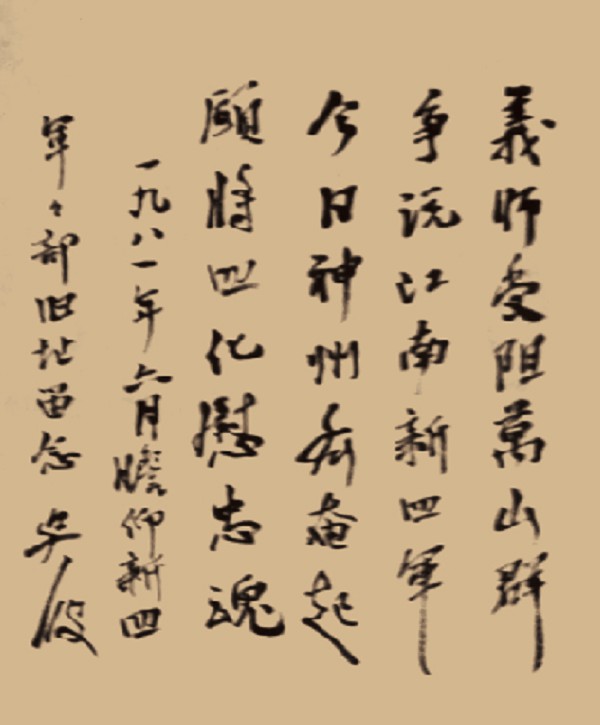 義師受阻萬山群
争说江南新四軍
今日神州齐奮起
願將四化慰忠魂
一九八一年六月瞻仰新四
軍々部旧址留念 吴